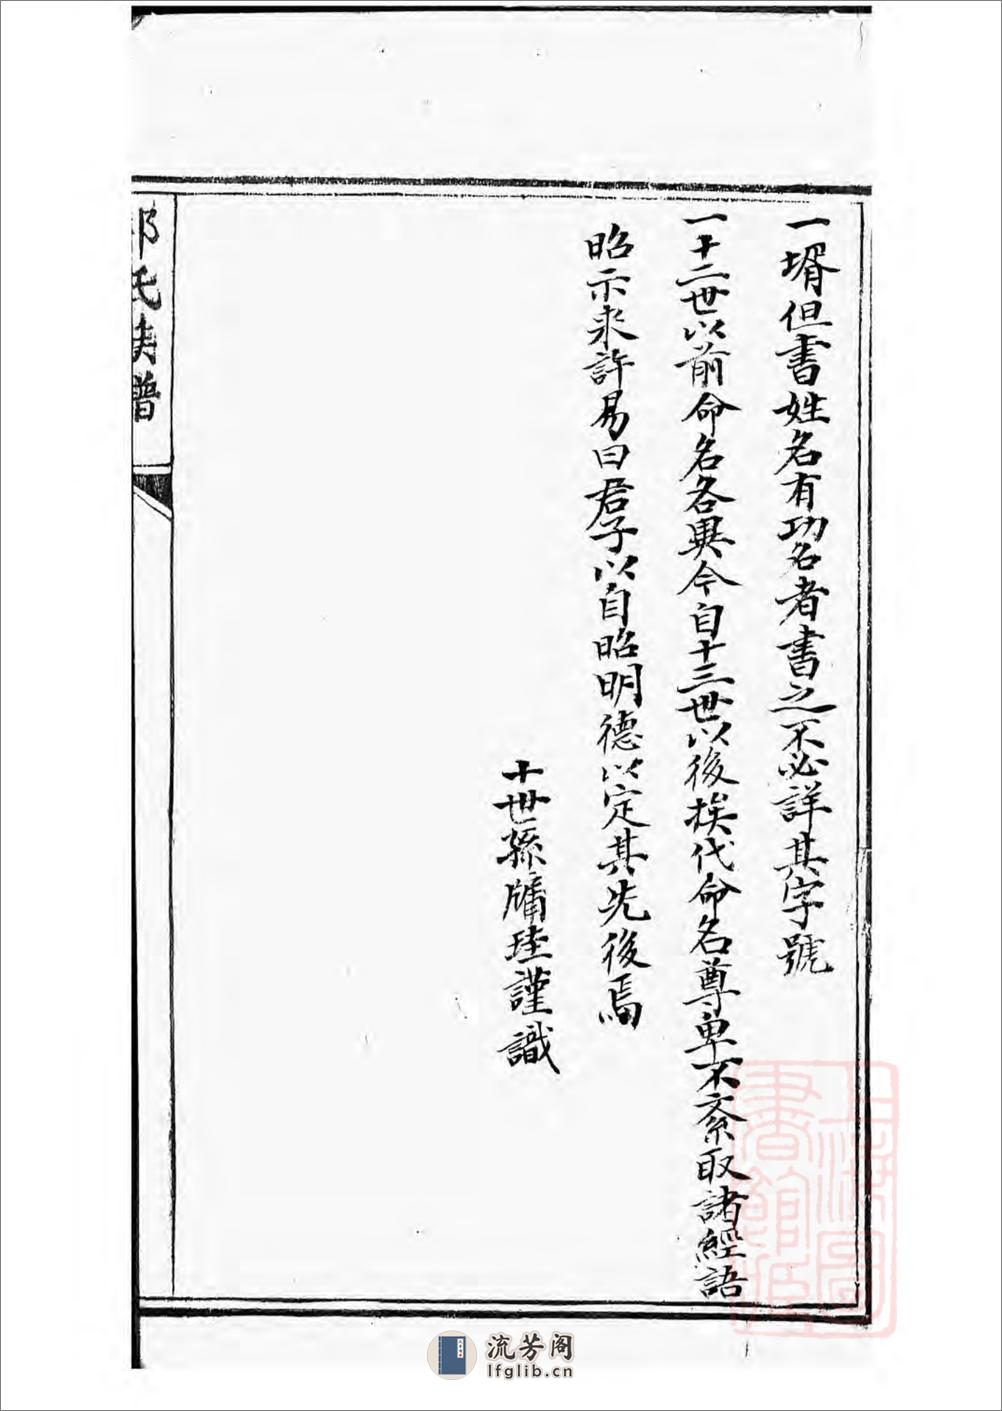 一壻但書姓名有功名者書之不必詳其字號
一十二世以前命名各異今自十三世以後挨代命名尊卑不紊取諸經語
昭示来許易曰君子以自昭明德以定其先後焉
十世孫墉珪謹識
氏族譜
上海圖書館藏
流芳阁
lfglib.cn